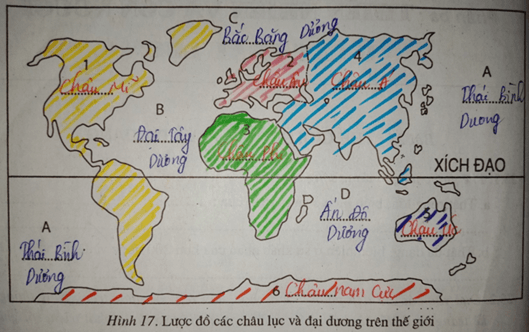 C
Bắc Băng Dương
1
Châu Mĩ
2
Châu Âu
4
Châu Á
A
Thái Bình
Dương
B
Đại Tây
Dương
3
Châu Phi
XÍCH ĐẠO
D
Ấn Độ
Dương
5
Châu Úc
A
Thái Bình
Dương
6 Châu Nam Cực
Hình 17. Lược đồ các châu lục và đại dương trên thế giới